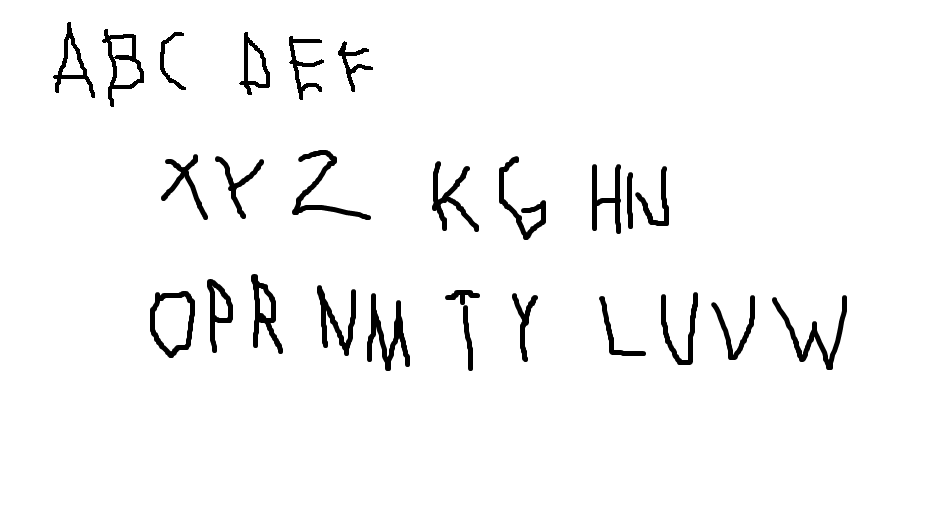 ABC DEF
XYZ KG HN
OPR NM TY LUVW